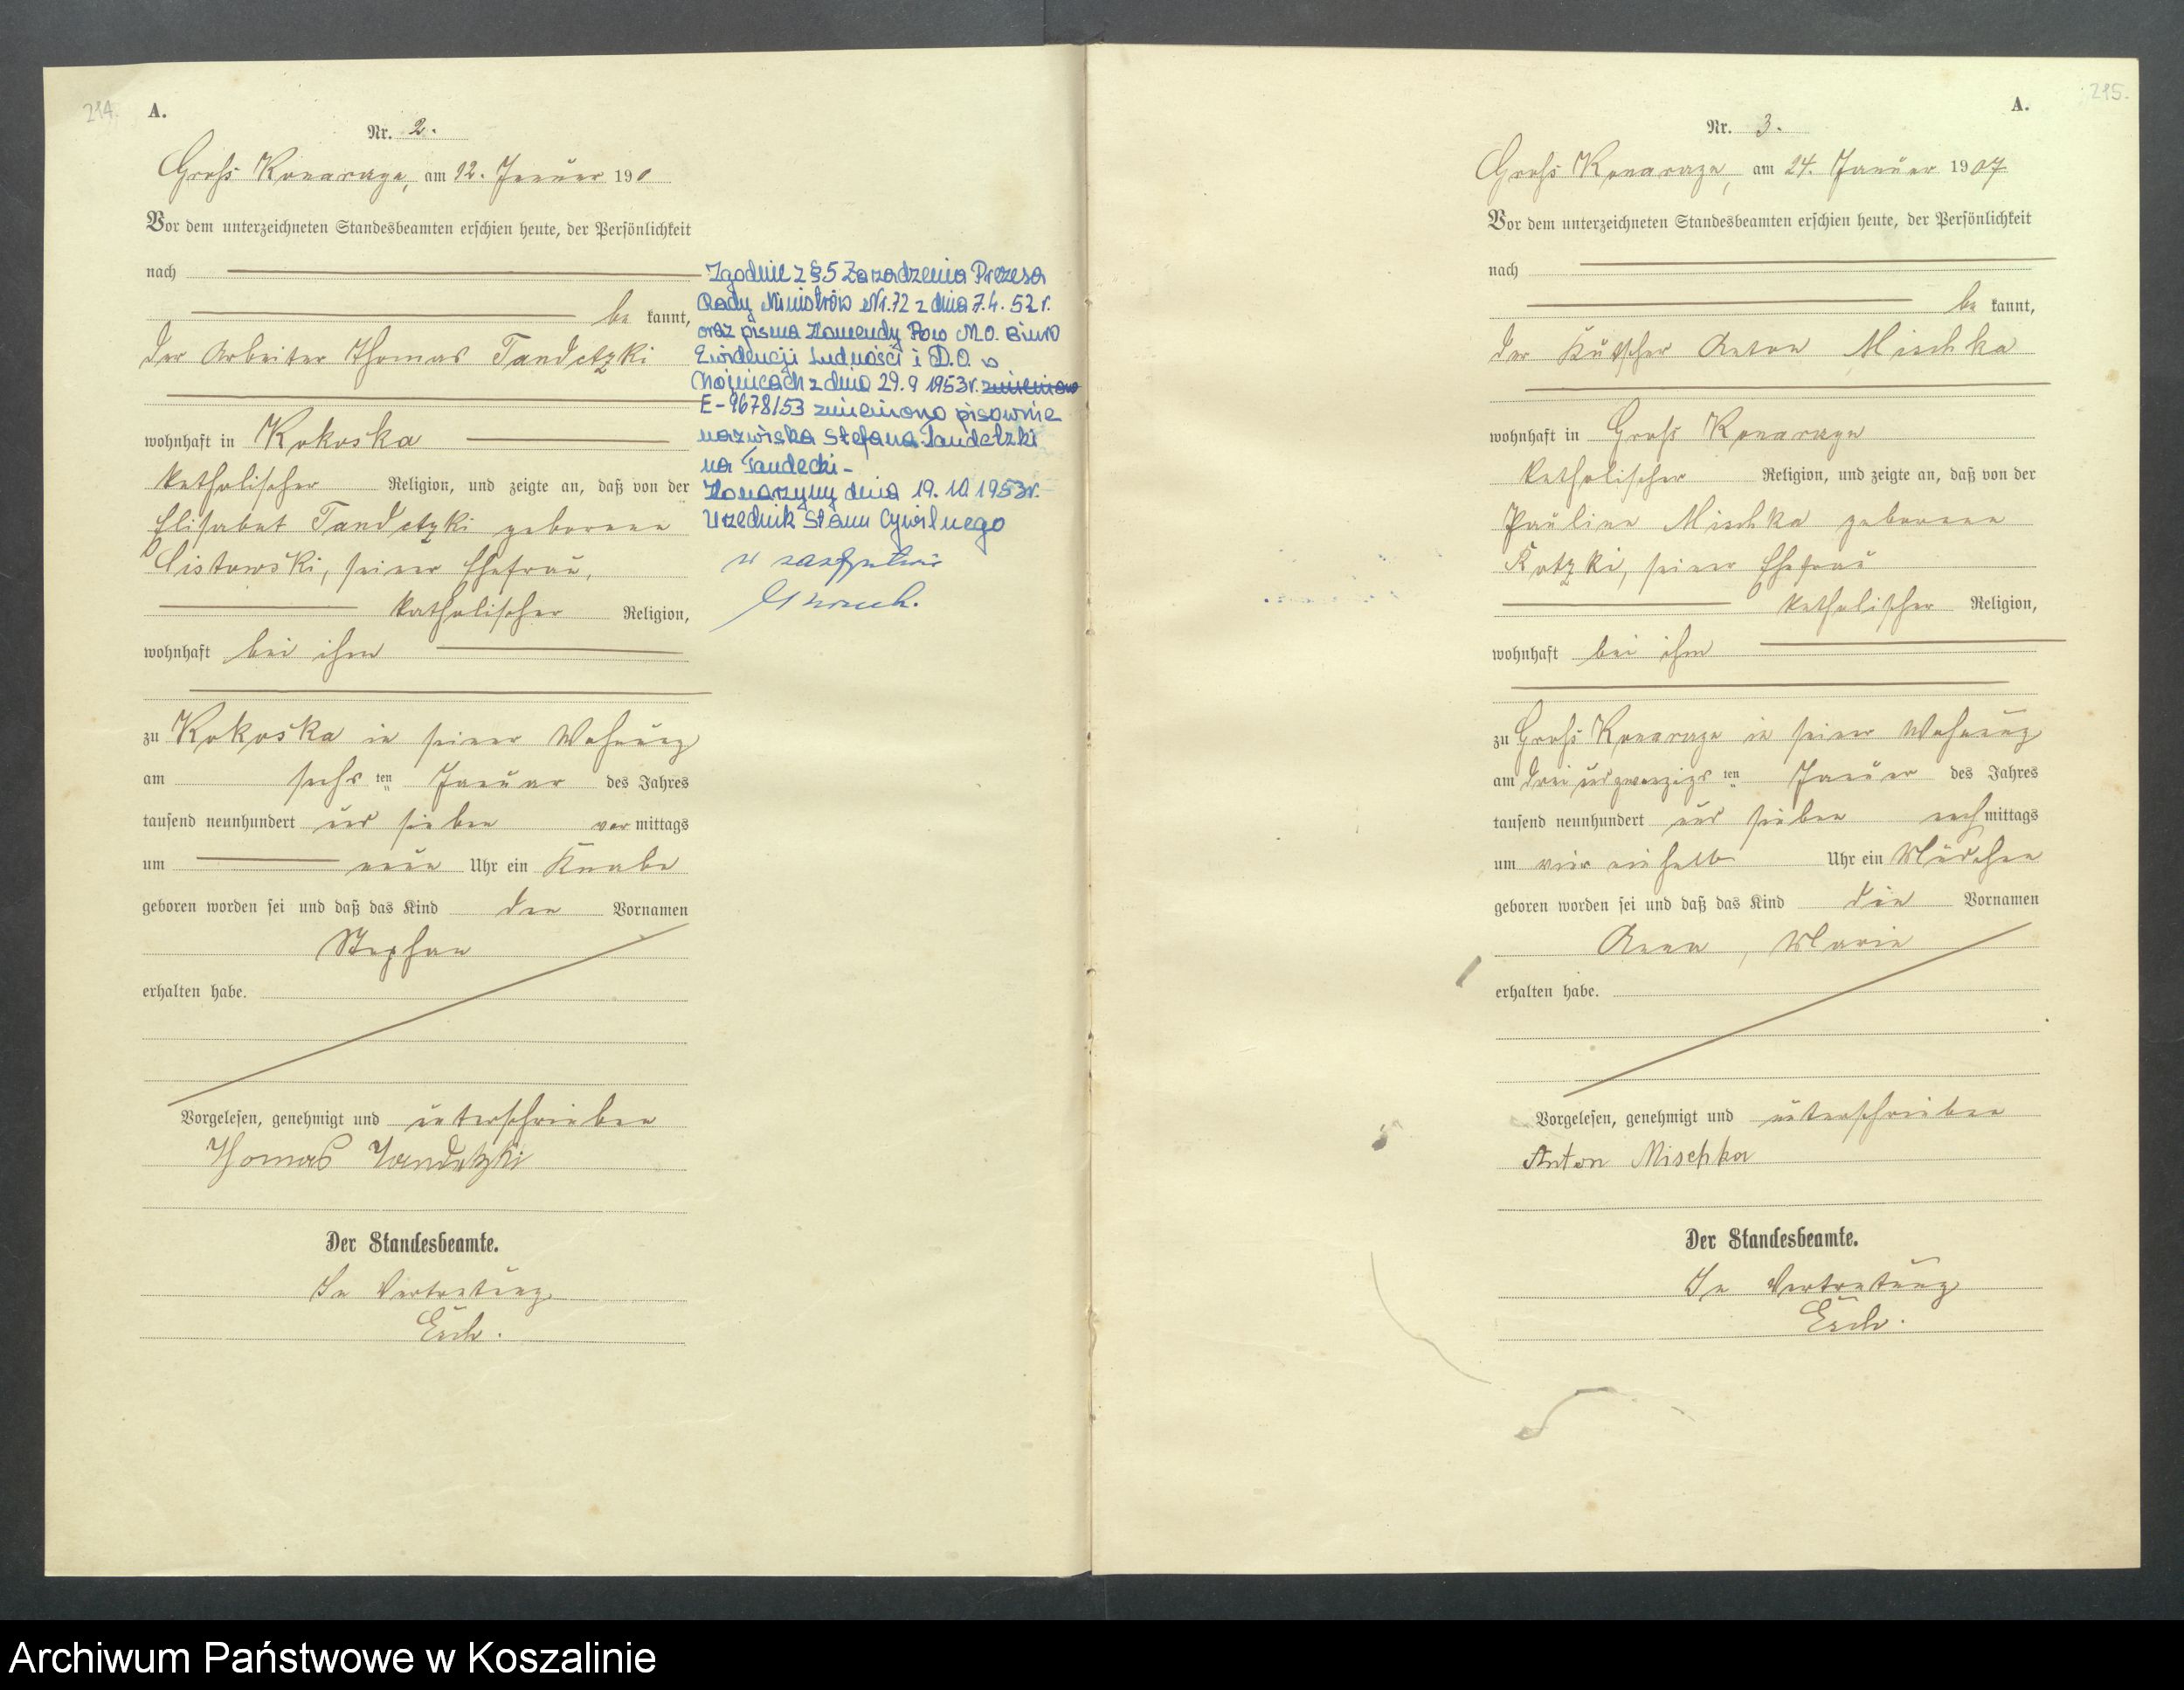 214.
A.
Nr. 2.
Groß Konarzyn, am 12. Januar 190
Vor dem unterzeichneten Standesbeamten erschien heute, der Persönlichkeit
nach
be kannt,
der Arbeiter Thomas Tandetzki
wohnhaft in Kokoska
katholischer Religion, und zeigte an, daß von der
Elisabet Tandetzki geborenen
Cistowski, seiner Ehefrau,
katholischer Religion,
wohnhaft bei ihm
zu Kokoska in seiner Wohnung
am sechsten Januar des Jahres
tausend neunhundert und sieben vor mittags
um neun Uhr ein Knabe
geboren worden sei und daß das Kind den Vornamen
Stephan
erhalten habe.
Vorgelesen, genehmigt und unterschrieben
Thomas Tandetzki
Der Standesbeamte.
In Vertretung
Zgodnie z § 5 Zarządzenia Prezesa
Rady Ministrów Nr. 72 z dnia 7.4.52 r.
oraz pisma Komendy Pow M.O. Biuro
Ewidencji Ludności i D.O. w
Chojnicach z dnia 29.9 1953 r. zmieniono
E-9678/53 zmieniono pisownię
nazwiska Stefana Tandetzki
na Tandecki -
Konarzyny dnia 19.10 1953 r.
Urzędnik Stanu Cywilnego
w zastępstwie
215.
A.
Nr. 3.
Groß Konarzyn, am 24. Januar 1907
Vor dem unterzeichneten Standesbeamten erschien heute, der Persönlichkeit
nach
be kannt,
der Kutscher Anton Mischka
wohnhaft in Groß Konarzyn
katholischer Religion, und zeigte an, daß von der
Pauline Mischka geborenen
Kotzki, seiner Ehefrau
katholischer Religion,
wohnhaft bei ihm
zu Groß Konarzyn in seiner Wohnung
am drei und zwanzigsten Januar des Jahres
tausend neunhundert und sieben nach mittags
um vier einhalb Uhr ein Mädchen
geboren worden sei und daß das Kind die Vornamen
Anna, Marie
erhalten habe.
Vorgelesen, genehmigt und unterschrieben
Anton Mischka
Der Standesbeamte.
In Vertretung
Archiwum Państwowe w Koszalinie